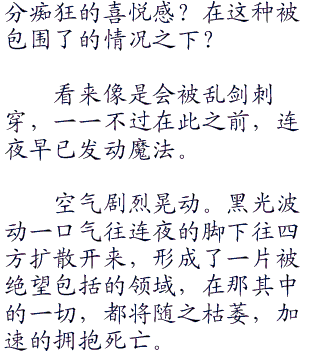 分痴狂的喜悦感？在这种被
包围了的情况之下？
看来像是会被乱剑刺
穿，一一不过在此之前，连
夜早已发动魔法。
空气剧烈晃动。黑光波
动一口气往连夜的脚下往四
方扩散开来，形成了一片被
绝望包括的领域，在那其中
的一切，都将随之枯萎，加
速的拥抱死亡。